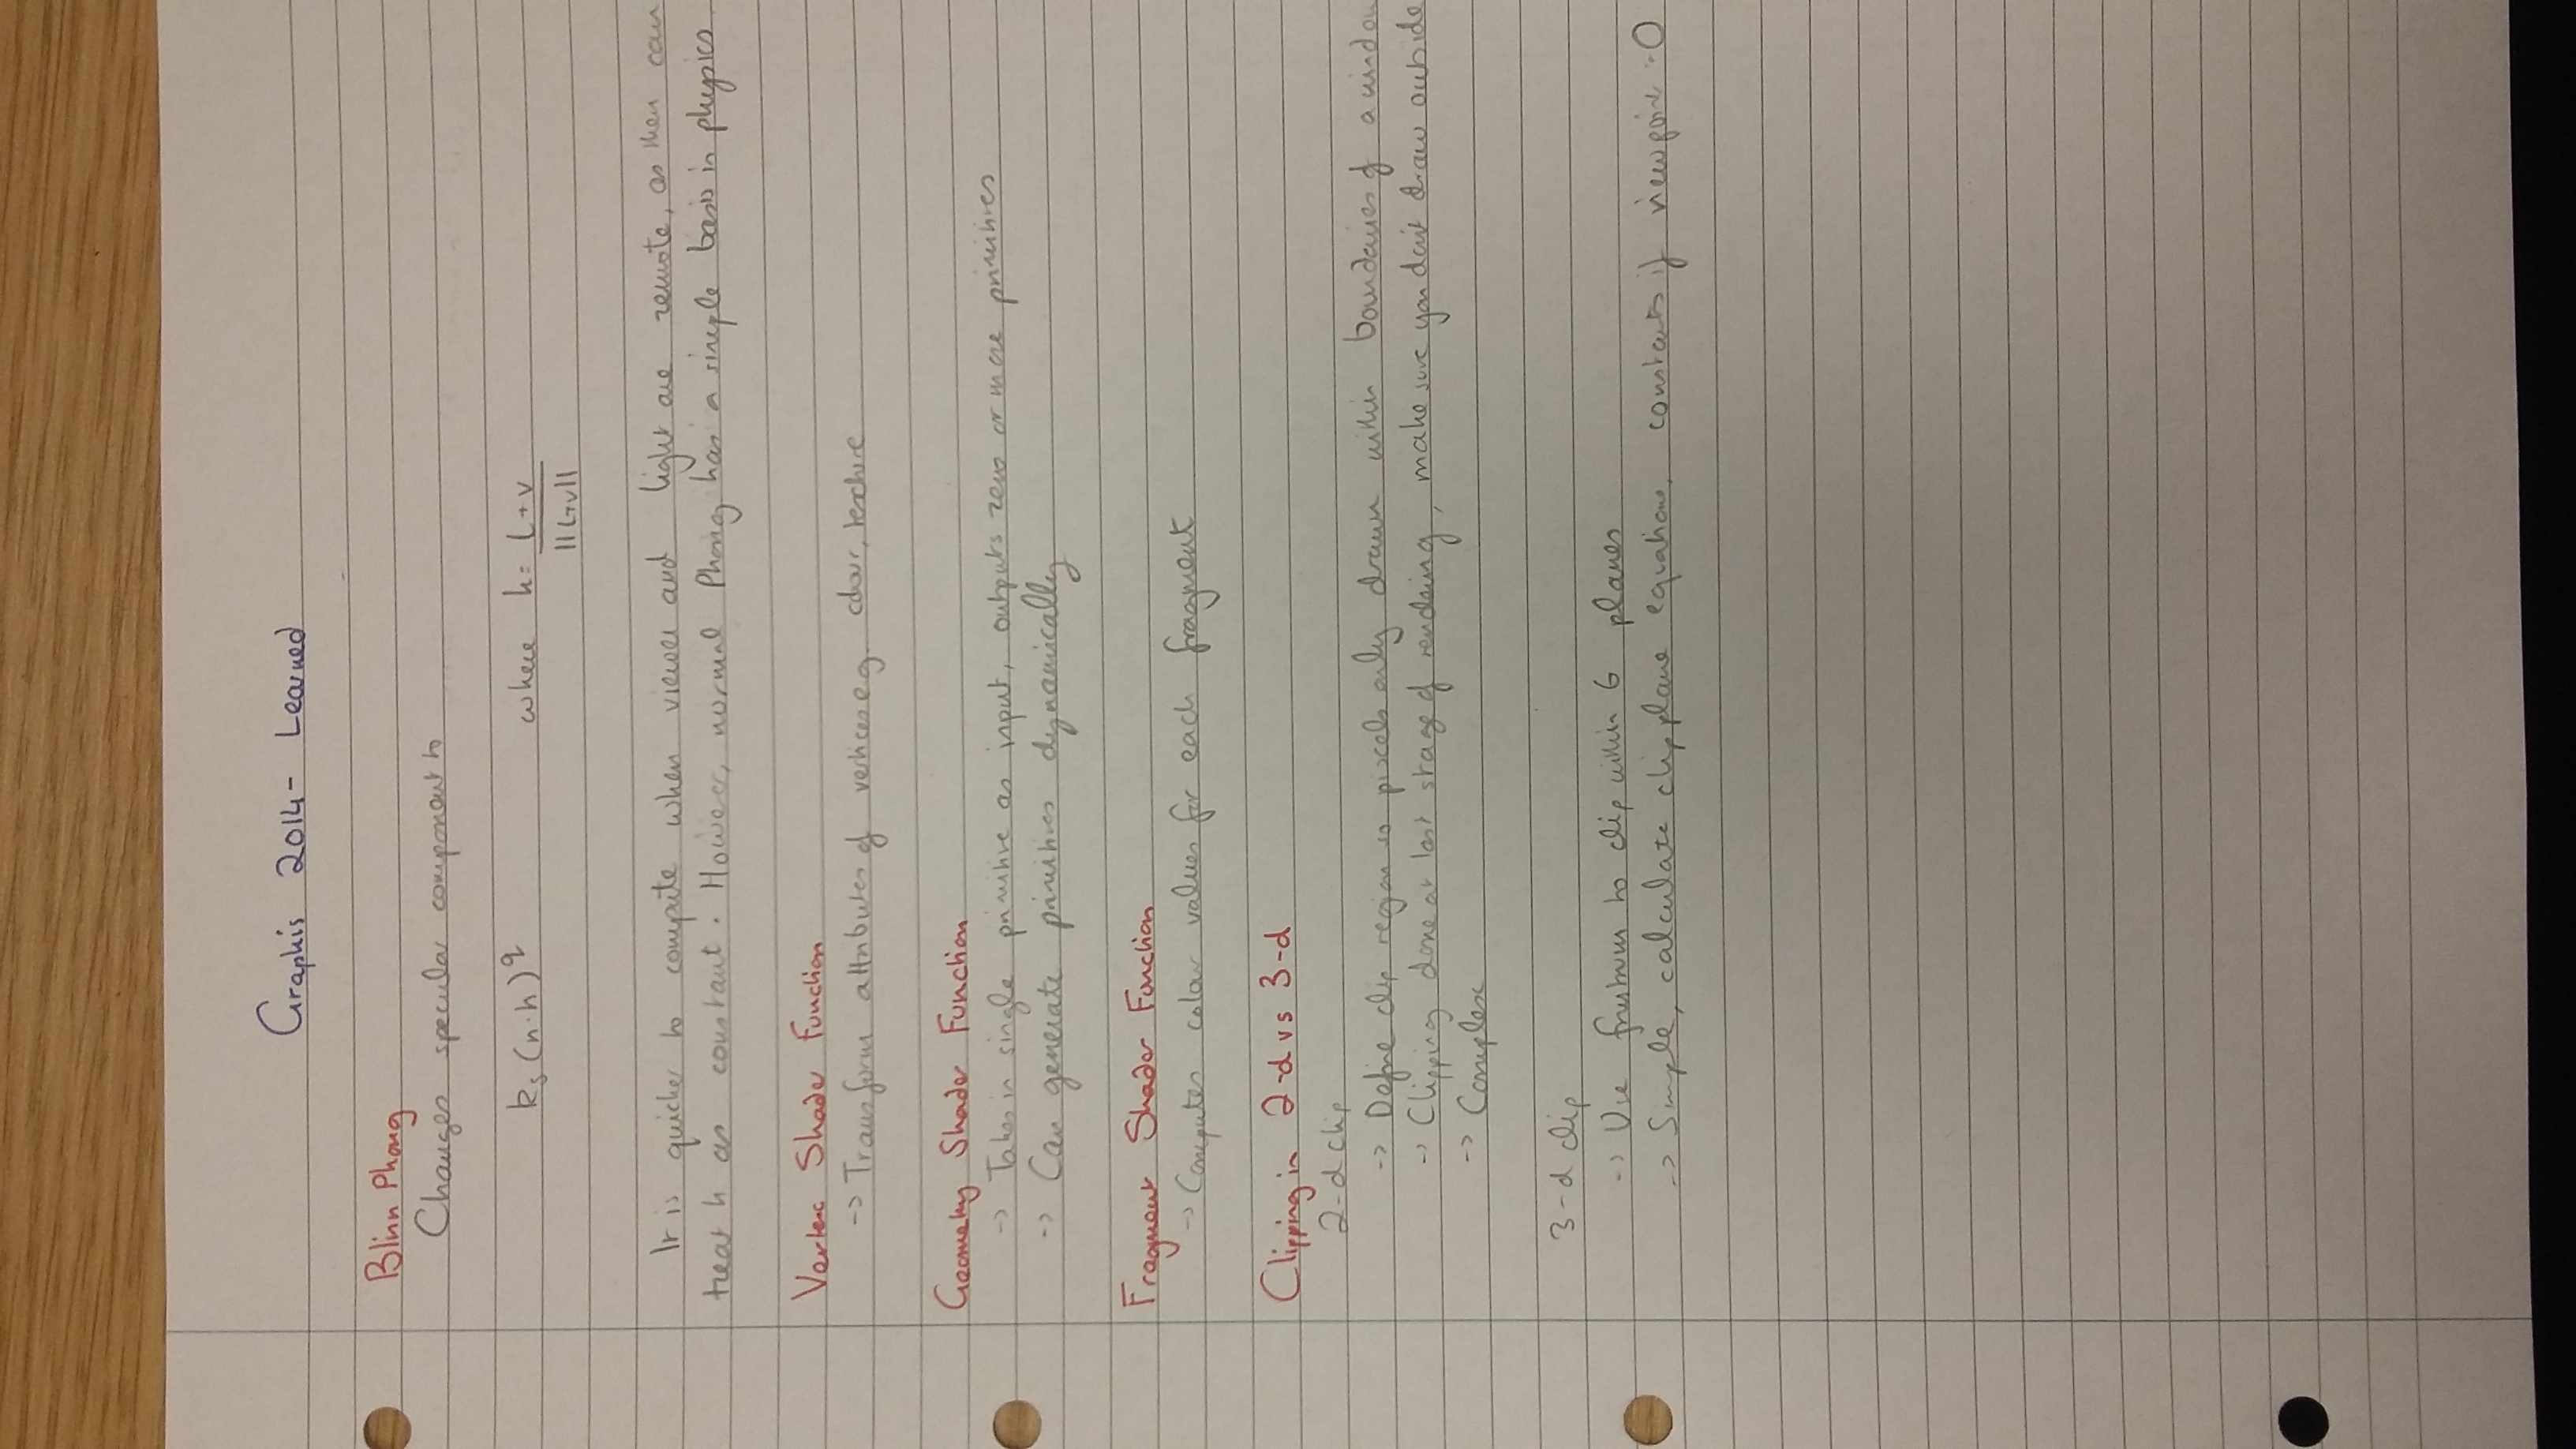 Graphis 2014 - Learned
Blinn Phong
Changes specular component to
ks (n·h)^q where h = l+v
||l+v||
It is quicker to compute when viewer and light are remote, as then can
treat h as constant. However, normal Phong has a simple basis in physics
Vertex Shader Function
-> Transform attributes of vertices e.g. colour, texture
Geometry Shader Function
-> Takes in single primitive as input, outputs zero or more primitives
-> Can generate primitives dynamically
Fragment Shader Function
-> Computes colour values for each fragment
Clipping in 2-d vs 3-d
2-d clip
-> Define clip region so pixels only drawn within boundaries of a window
-> Clipping done at last stage of rendering, make sure you don't draw outside
-> Complex
3-d clip
-> Use frustrum to clip within 6 planes
-> Simple, calculate clip plane equations, constants if viewpoint = 0